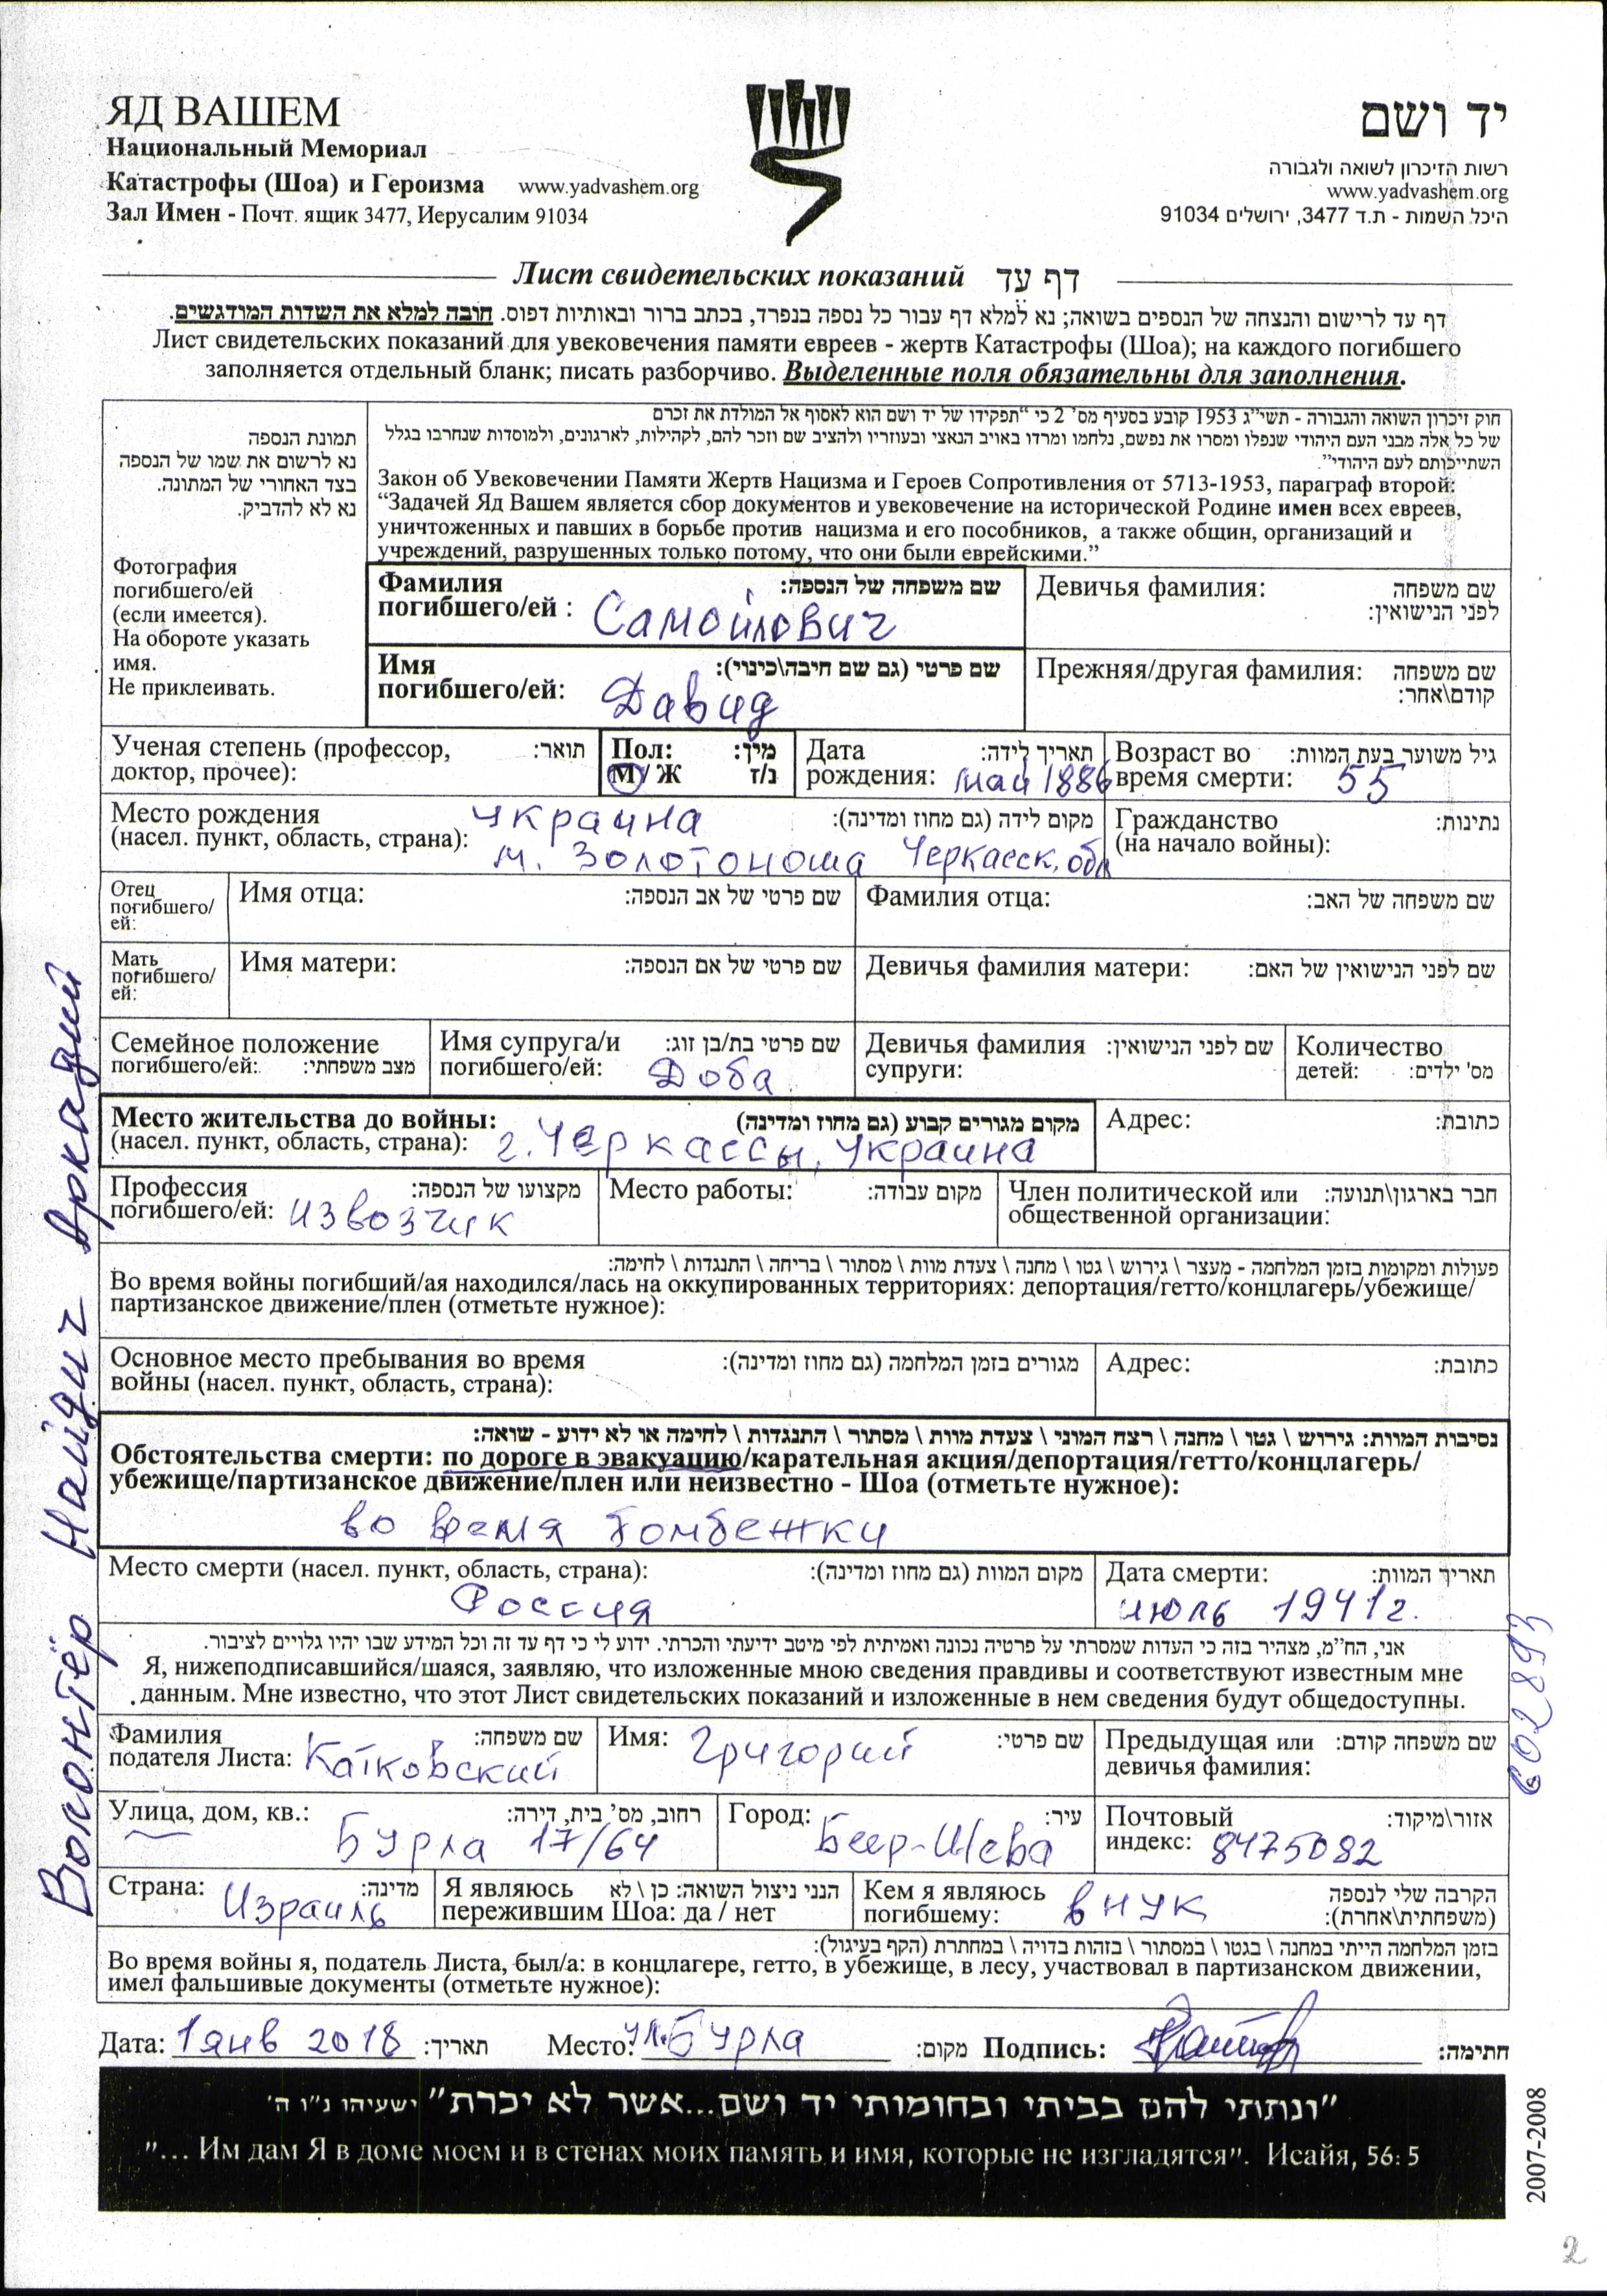 ЯД ВАШЕМ
Национальный Мемориал
Катастрофы (Шоа) и Героизма www.yadvashem.org
Зал Имен - Почт. ящик 3477, Иерусалим 91034
יד ושם
רשות הזיכרון לשואה ולגבורה
www.yadvashem.org
היכל השמות - ת.ד 3477, ירושלים 91034
Лист свидетельских показаний דף עד
דף עד לרישום והנצחה של הנספים בשואה; נא למלא דף עבור כל נספה בנפרד, בכתב ברור ובאותיות דפוס. חובה למלא את השדות המודגשים.
Лист свидетельских показаний для увековечения памяти евреев - жертв Катастрофы (Шоа); на каждого погибшего
заполняется отдельный бланк; писать разборчиво. Выделенные поля обязательны для заполнения.
תמונת הנספה
נא לרשום את שמו של הנספה
בצד האחורי של המתונה.
נא לא להדביק.
Фотография
погибшего/ей
(если имеется).
На обороте указать
имя.
Не приклеивать.
חוק זיכרון השואה והגבורה - תשי"ג 1953 קובע בסעיף מס' 2 כי "תפקידו של יד ושם הוא לאסוף אל המולדת את זכרם
של כל אלה מבני העם היהודי שנפלו ומסרו את נפשם, נלחמו ומרדו באויב הנאצי ובעוזריו ולהציב שם וזכר להם, לקהילות, לארגונים, ולמוסדות שנחרבו בגלל
השתייכותם לעם היהודי".
Закон об Увековечении Памяти Жертв Нацизма и Героев Сопротивления от 5713-1953, параграф второй:
"Задачей Яд Вашем является сбор документов и увековечение на исторической Родине имен всех евреев,
уничтоженных и павших в борьбе против нацизма и его пособников, а также общин, организаций и
учреждений, разрушенных только потому, что они были еврейскими."
Фамилия שם משפחה של הנספה:
погибшего/ей : Самойлович
Девичья фамилия: שם משפחה
לפני הנישואין:
Имя שם פרטי (גם שם חיבה\כינוי):
погибшего/ей: Давид
Прежняя/другая фамилия: שם משפחה
קודם\אחר:
Ученая степень (профессор, תואר:
доктор, прочее):
Пол: מין:
М / Ж נ/ז
Дата תאריך לידה:
рождения: май 1886
Возраст во גיל משוער בעת המוות:
время смерти: 55
Место рождения Украина מקום לידה (גם מחוז ומדינה):
(насел. пункт, область, страна): м. Золотоноша Черкасск. обл
Гражданство נתינות:
(на начало войны):
Отец
погибшего/
ей:
Имя отца: שם פרטי של אב הנספה:
Фамилия отца: שם משפחה של האב:
Мать
погибшего/
ей:
Имя матери: שם פרטי של אם הנספה:
Девичья фамилия матери: שם לפני הנישואין של האם:
Семейное положение
погибшего/ей: מצב משפחתי:
Имя супруга/и שם פרטי בת/בן זוג:
погибшего/ей: Доба
Девичья фамилия שם לפני הנישואין:
супруги:
Количество
детей: מס' ילדים:
Место жительства до войны: מקום מגורים קבוע (גם מחוז ומדינה)
(насел. пункт, область, страна): г. Черкассы, Украина
Адрес: כתובת:
Профессия מקצועו של הנספה:
погибшего/ей: извозчик
Место работы: מקום עבודה:
Член политической или חבר בארגון\תנועה:
общественной организации:
פעולות ומקומות בזמן המלחמה - מעצר \ גירוש \ גטו \ מחנה \ צעדת מוות \ מסתור \ בריחה \ התנגדות \ לחימה:
Во время войны погибший/ая находился/лась на оккупированных территориях: депортация/гетто/концлагерь/убежище/
партизанское движение/плен (отметьте нужное):
Основное место пребывания во время מגורים בזמן המלחמה (גם מחוז ומדינה):
войны (насел. пункт, область, страна):
Адрес: כתובת:
נסיבות המוות: גירוש \ גטו \ מחנה \ רצח המוני \ צעדת מוות \ מסתור \ התנגדות \ לחימה או לא ידוע - שואה:
Обстоятельства смерти: по дороге в эвакуацию/карательная акция/депортация/гетто/концлагерь/
убежище/партизанское движение/плен или неизвестно - Шоа (отметьте нужное):
во время бомбежки
Место смерти (насел. пункт, область, страна): מקום המוות (גם מחוז ומדינה):
Россия
Дата смерти: תאריך המוות:
июль 1941г.
אני, הח"מ, מצהיר בזה כי העדות שמסרתי על פרטיה נכונה ואמיתית לפי מיטב ידיעתי והכרתי. ידוע לי כי דף עד זה וכל המידע שבו יהיו גלויים לציבור.
Я, нижеподписавшийся/шаяся, заявляю, что изложенные мною сведения правдивы и соответствуют известным мне
данным. Мне известно, что этот Лист свидетельских показаний и изложенные в нем сведения будут общедоступны.
Фамилия שם משפחה:
подателя Листа: Катковский
Имя: Григорий שם פרטי:
Предыдущая или שם משפחה קודם:
девичья фамилия:
Улица, дом, кв.: רחוב, מס' בית, דירה:
Бурла 17/64
Город: Беер-Шева עיר:
Почтовый אזור\מיקוד:
индекс: 8475082
Страна: Израиль מדינה:
Я являюсь הנני ניצול השואה: כן \ לא
пережившим Шоа: да / нет
Кем я являюсь הקרבה שלי לנספה
погибшему: внук (משפחתית\אחרת):
בזמן המלחמה הייתי במחנה \ בגטו \ במסתור \ בזהות בדויה \ במחתרת (הקף בעיגול):
Во время войны я, податель Листа, был/а: в концлагере, гетто, в убежище, в лесу, участвовал в партизанском движении,
имел фальшивые документы (отметьте нужное):
Дата: 1 янв 2018 תאריך: Место: ул. Бурла מקום: Подпись: חתימה:
"ונתתי להם בביתי ובחומותי יד ושם...אשר לא יכרת" ישעיהו נ"ו ה'
"... Им дам Я в доме моем и в стенах моих память и имя, которые не изгладятся". Исайя, 56: 5
Волонтёр Найдич Аркадий
602893
2007-2008
2